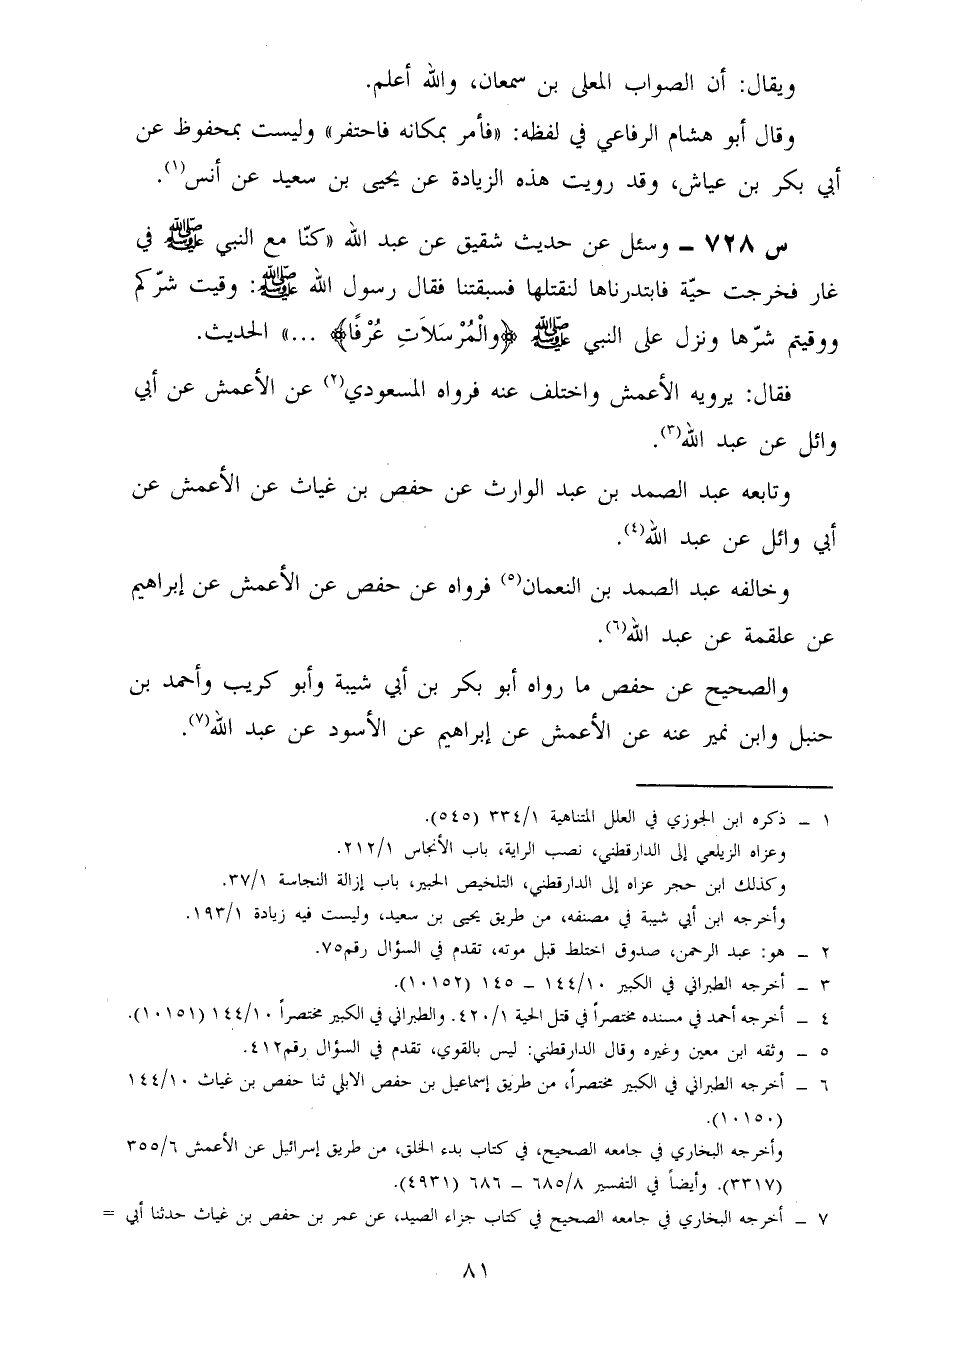 ويقال: أن الصواب المعلى بن سمعان، والله أعلم.
وقال أبو هشام الرفاعي في لفظه: «فأمر بمكانه فاحتفر» وليست بمحفوظ عن
أبي بكر بن عياش، وقد رويت هذه الزيادة عن يحيى بن سعيد عن أنس(١).
س ٧٢٨ ـ وسئل عن حديث شقيق عن عبد الله «كنّا مع النبي ﷺ في
غار فخرجت حيّة فابتدرناها لنقتلها فسبقتنا فقال رسول الله ﷺ: وقيت شرّكم
ووقيتم شرّها ونزل على النبي ﷺ ﴿والْمُرْسَلاَتِ عُرْفًا﴾ ...» الحديث.
فقال: يرويه الأعمش واختلف عنه فرواه المسعودي(٢) عن الأعمش عن أبي
وائل عن عبد الله(٣).
وتابعه عبد الصمد بن عبد الوارث عن حفص بن غياث عن الأعمش عن
أبي وائل عن عبد الله(٤).
وخالفه عبد الصمد بن النعمان(٥) فرواه عن حفص عن الأعمش عن إبراهيم
عن علقمة عن عبد الله(٦).
والصحيح عن حفص ما رواه أبو بكر بن أبي شيبة وأبو كريب وأحمد بن
حنبل وابن نمير عنه عن الأعمش عن إبراهيم عن الأسود عن عبد الله(٧).
١ ـ ذكره ابن الجوزي في العلل المتناهية ٣٣٤/١ (٥٤٥).
وعزاه الزيلعي إلى الدارقطني، نصب الراية، باب الأنجاس ٢١٢/١.
وكذلك ابن حجر عزاه إلى الدارقطني، التلخيص الحبير، باب إزالة النجاسة ٣٧/١.
وأخرجه ابن أبي شيبة في مصنفه، من طريق يحيى بن سعيد، وليست فيه زيادة ١٩٣/١.
٢ ـ هو: عبد الرحمن، صدوق اختلط قبل موته، تقدم في السؤال رقم٧٥.
٣ ـ أخرجه الطبراني في الكبير ١٤٤/١٠ ـ ١٤٥ (١٠١٥٢).
٤ ـ أخرجه أحمد في مسنده مختصراً في قتل الحية ٤٢٠/١. والطبراني في الكبير مختصراً ١٤٤/١٠ (١٠١٥١).
٥ ـ وثقه ابن معين وغيره وقال الدارقطني: ليس بالقوي، تقدم في السؤال رقم٤١٢.
٦ ـ أخرجه الطبراني في الكبير مختصراً، من طريق إسماعيل بن حفص الابلي ثنا حفص بن غياث ١٤٤/١٠
(١٠١٥٠).
وأخرجه البخاري في جامعه الصحيح، في كتاب بدء الخلق، من طريق إسرائيل عن الأعمش ٣٥٥/٦
(٣٣١٧). وأيضاً في التفسير ٦٨٥/٨ ـ ٦٨٦ (٤٩٣١).
٧ ـ أخرجه البخاري في جامعه الصحيح في كتاب جزاء الصيد، عن عمر بن حفص بن غياث حدثنا أبي =
٨١